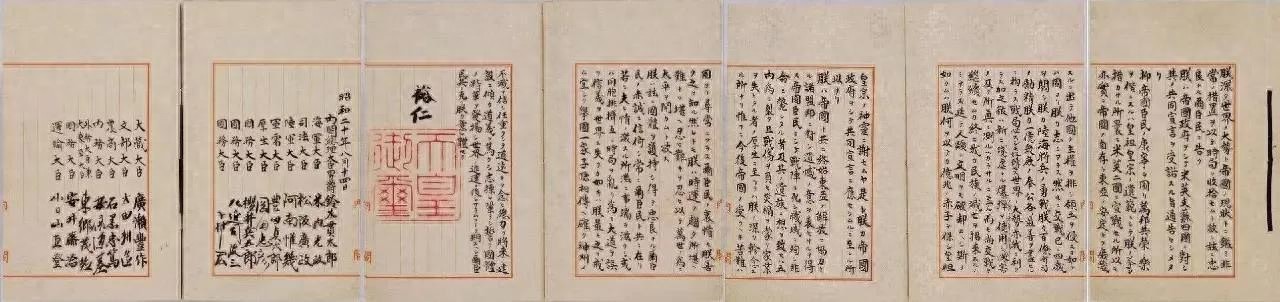 朕深ク世界ノ大勢ト帝國ノ現狀トニ鑑ミ非
常ノ措置ヲ以テ時局ヲ收拾セムト欲シ茲ニ忠
良ナル爾臣民ニ告ク
朕ハ帝國政府ヲシテ米英支蘇四國ニ對シ
其ノ共同宣言ヲ受諾スル旨通告セシメタ
リ
抑〻帝國臣民ノ康寧ヲ圖リ萬邦共榮ノ樂
ヲ偕ニスルハ皇祖皇宗ノ遺範ニシテ朕ノ拳々
措カサル所曩ニ米英二國ニ宣戰セル所以モ
亦實ニ帝國ノ自存ト東亞ノ安定トヲ庶幾
スルニ出テ他國ノ主權ヲ排シ領土ヲ侵スカ如
キハ固ヨリ朕カ志ニアラス然ルニ交戰已ニ四歲
ヲ閱シ朕カ陸海將兵ノ勇戰朕カ百僚有司
ノ勵精朕カ一億衆庶ノ奉公各〻最善ヲ盡セ
ルニ拘ラス戰局必スシモ好轉セス世界ノ大勢亦我ニ利
アラス加之敵ハ新ニ殘虐ナル爆彈ヲ使用シテ頻ニ無辜
ヲ殺傷シ慘害ノ及フ所眞ニ測ルヘカラサルニ至ル而モ尚交戰ヲ
繼續セムカ終ニ我カ民族ノ滅亡ヲ招來スルノ
ミナラス延テ人類ノ文明ヲモ破却スヘシ斯ノ
如クムハ朕何ヲ以テカ億兆ノ赤子ヲ保シ皇祖
皇宗ノ神靈ニ謝セムヤ是レ朕カ帝國
政府ヲシテ共同宣言ニ應セシムルニ至レル所
以ナリ
朕ハ帝國ト共ニ終始東亞ノ解放ニ協力セル
諸盟邦ニ對シ遺憾ノ意ヲ表セサルヲ得ス
帝國臣民ニシテ戰陣ニ死シ職域ニ殉シ非
命ニ斃レタル者及其ノ遺族ニ想ヲ致セハ五
內爲ニ裂ク且戰傷ヲ負ヒ災禍ヲ蒙リ家業
ヲ失ヒタル者ノ厚生ニ至リテハ朕ノ深ク軫念ス
ル所ナリ惟フニ今後帝國ノ受クヘキ苦難ハ
固ヨリ尋常ニアラス爾臣民ノ衷情モ朕善
ク之ヲ知ル然レトモ朕ハ時運ノ趨ク所堪ヘ
難キヲ堪ヘ忍ヒ難キヲ忍ヒ以テ萬世ノ爲ニ
太平ヲ開カムト欲ス
朕ハ茲ニ國體ヲ護持シ得テ忠良ナル爾臣
民ノ赤誠ニ信倚シ常ニ爾臣民ト共ニ在リ
若シ夫レ情ノ激スル所濫ニ事端ヲ滋クシ或
ハ同胞排擠互ニ時局ヲ亂リ爲ニ大道ヲ誤
リ信義ヲ世界ニ失フカ如キハ朕最モ之ヲ戒
ム宜シク擧國一家子孫相傳ヘ確ク神州ノ
不滅ヲ信シ任重クシテ道遠キヲ念ヒ總力ヲ將來ノ建
設ニ傾ケ道義ヲ篤クシ志操ヲ鞏クシ誓テ國體
ノ精華ヲ發揚シ世界ノ進運ニ後レサラムコトヲ期スヘシ爾臣民
其レ克ク朕カ意ヲ體セヨ
裕仁
天皇
御璽
昭和二十年八月十四日
內閣總理大臣男爵 鈴木貫太郎
海軍大臣 米內光政
司法大臣 松阪廣政
陸軍大臣 阿南惟幾
軍需大臣 豐田貞次郎
厚生大臣 岡田忠彥
國務大臣 櫻井兵五郎
國務大臣 左近司政三
國務大臣 下村宏
大藏大臣 廣瀨豐作
文部大臣 太田耕造
農商大臣 石黑忠篤
內務大臣 安倍源基
外務大臣兼大東亞大臣 東鄕茂德
國務大臣 安井藤治
運輸大臣 小日山直登